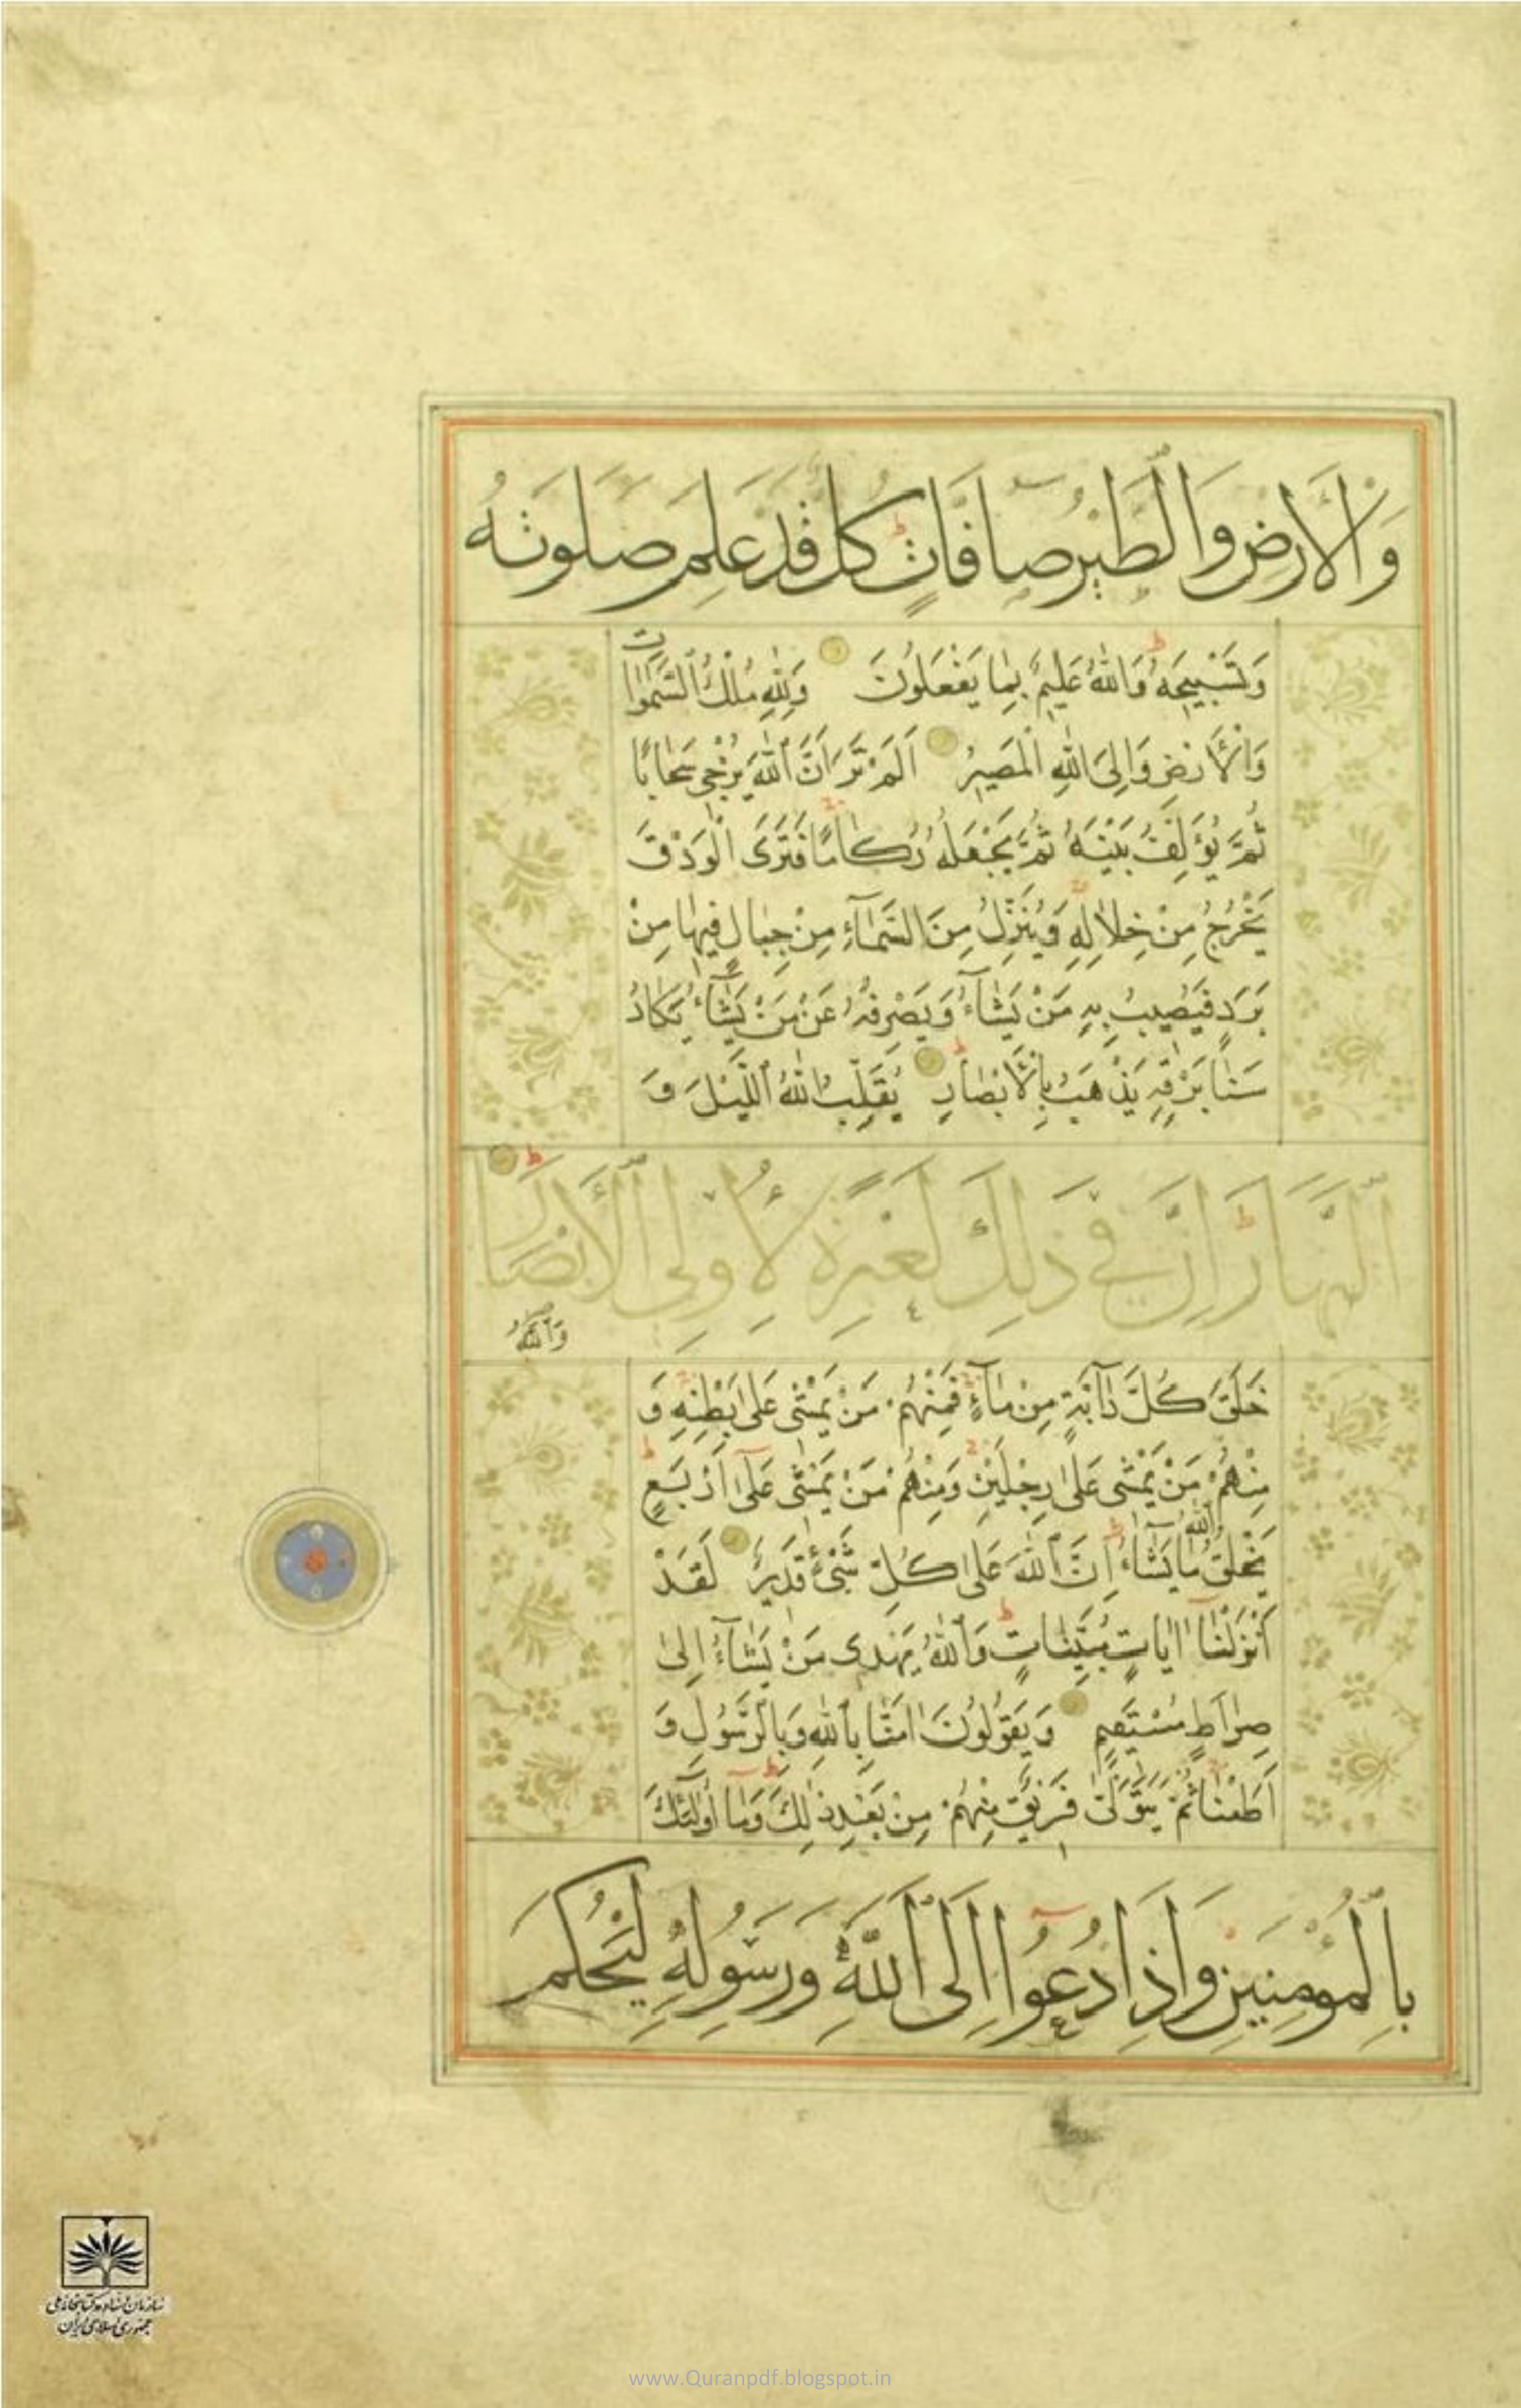 وَالْاَرْضِ وَالطَّيْرُ صَافَّاتٍ كُلٌّ قَدْ عَلِمَ صَلٰوتَهُ
وَتَسْبِيحَهُ وَاللّٰهُ عَلِيمٌ بِمَا يَفْعَلُونَ وَلِلّٰهِ مُلْكُ السَّمٰوَاتِ
وَالْاَرْضِ وَاِلَى اللّٰهِ الْمَصِيرُ اَلَمْ تَرَ اَنَّ اللّٰهَ يُزْجِي سَحَابًا
ثُمَّ يُؤَلِّفُ بَيْنَهُ ثُمَّ يَجْعَلُهُ رُكَامًا فَتَرَى الْوَدْقَ
يَخْرُجُ مِنْ خِلَالِهِ وَيُنَزِّلُ مِنَ السَّمَآءِ مِنْ جِبَالٍ فِيهَا مِنْ
بَرَدٍ فَيُصِيبُ بِهِ مَنْ يَشَآءُ وَيَصْرِفُهُ عَنْ مَنْ يَشَآءُ يَكَادُ
سَنَا بَرْقِهِ يَذْهَبُ بِالْاَبْصَارِ يُقَلِّبُ اللّٰهُ اللَّيْلَ وَ
النَّهَارَ اِنَّ فِي ذٰلِكَ لَعِبْرَةً لِاُولِي الْاَبْصَارِ
وَاللّٰهُ
خَلَقَ كُلَّ دَآبَّةٍ مِنْ مَآءٍ فَمِنْهُمْ مَنْ يَمْشِي عَلٰى بَطْنِهِ وَ
مِنْهُمْ مَنْ يَمْشِي عَلٰى رِجْلَيْنِ وَمِنْهُمْ مَنْ يَمْشِي عَلٰى اَرْبَعٍ
يَخْلُقُ اللّٰهُ مَا يَشَآءُ اِنَّ اللّٰهَ عَلٰى كُلِّ شَيْءٍ قَدِيرٌ لَقَدْ
اَنْزَلْنَا اٰيَاتٍ مُبَيِّنَاتٍ وَاللّٰهُ يَهْدِي مَنْ يَشَآءُ اِلٰى
صِرَاطٍ مُسْتَقِيمٍ وَيَقُولُونَ اٰمَنَّا بِاللّٰهِ وَبِالرَّسُولِ وَ
اَطَعْنَا ثُمَّ يَتَوَلّٰى فَرِيقٌ مِنْهُمْ مِنْ بَعْدِ ذٰلِكَ وَمَا اُولٰٓئِكَ
بِالْمُؤْمِنِينَ وَاِذَا دُعُوا اِلَى اللّٰهِ وَرَسُولِهِ لِيَحْكُمَ
سازمان اسناد و کتابخانه ملی
جمهوری اسلامی ایران
www.Quranpdf.blogspot.in